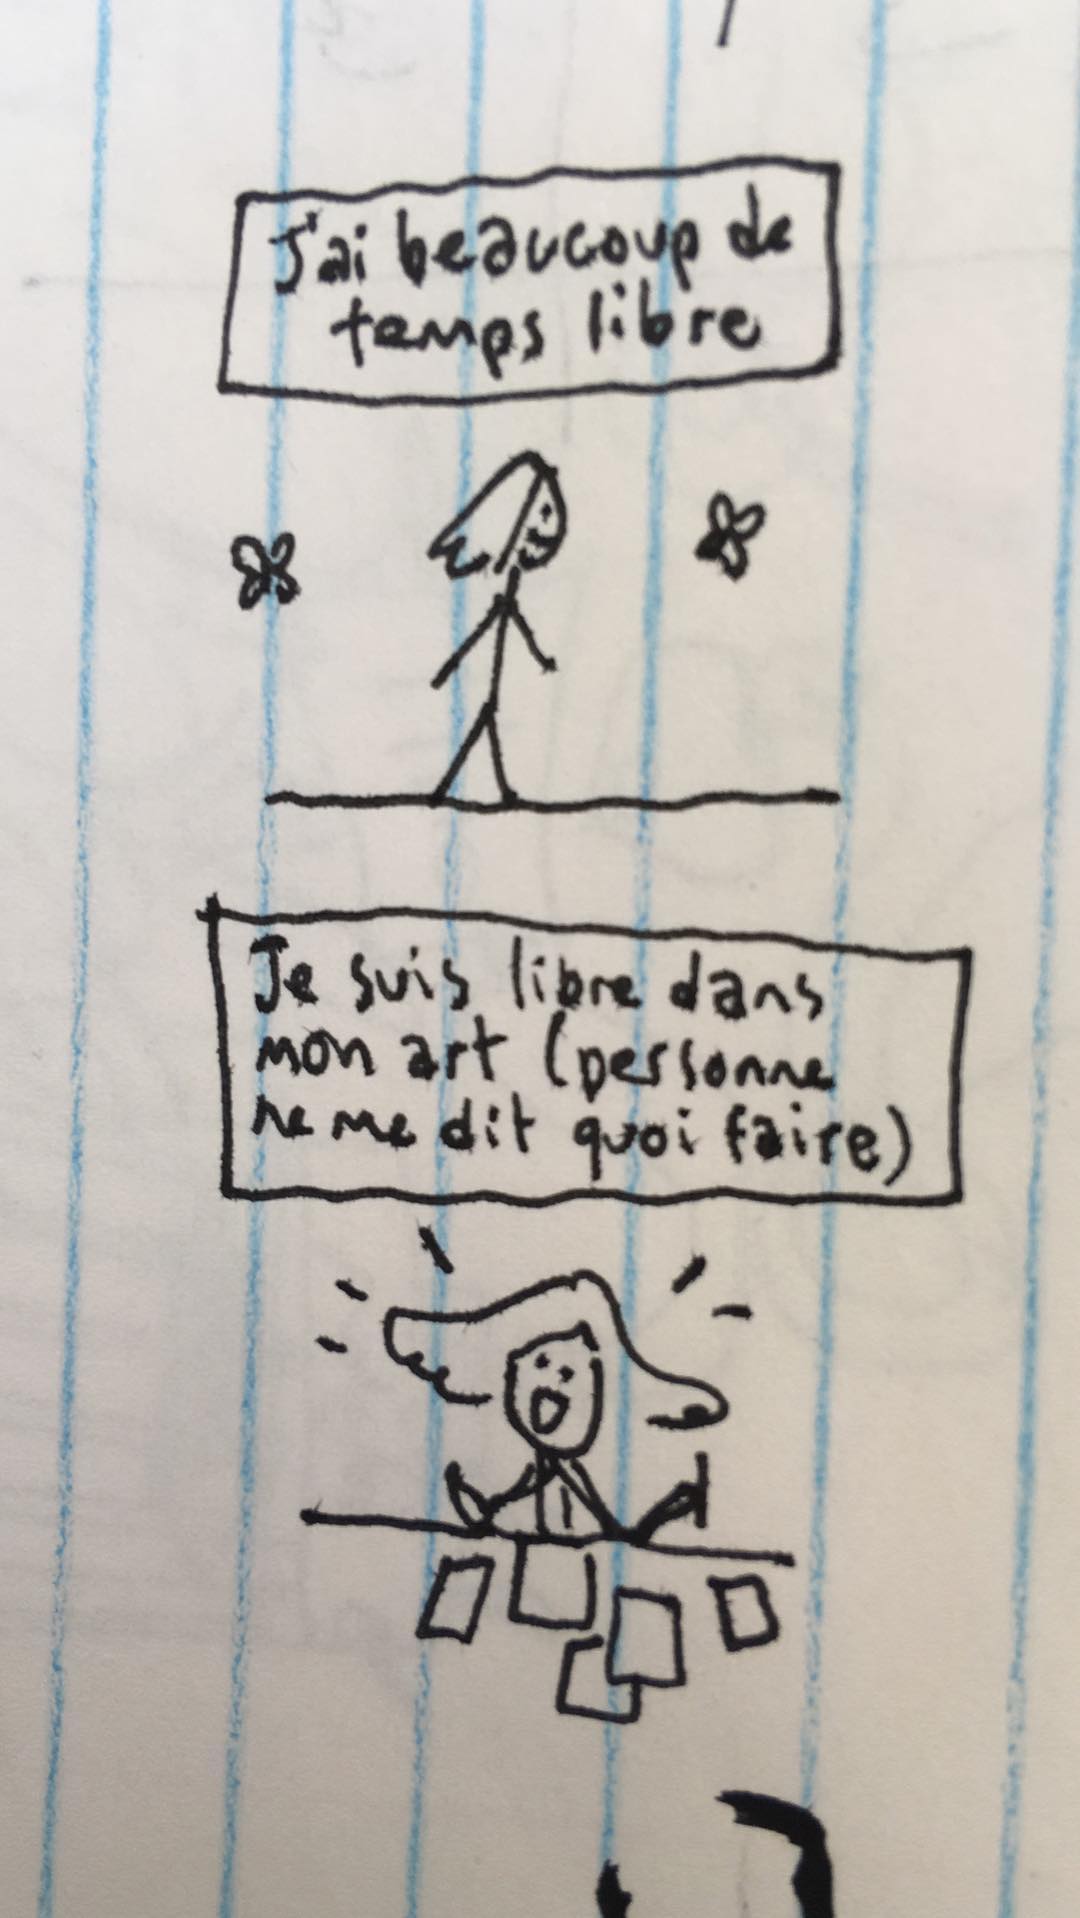 J'ai beaucoup de
temps libre
Je suis libre dans
mon art (personne
ne me dit quoi faire)